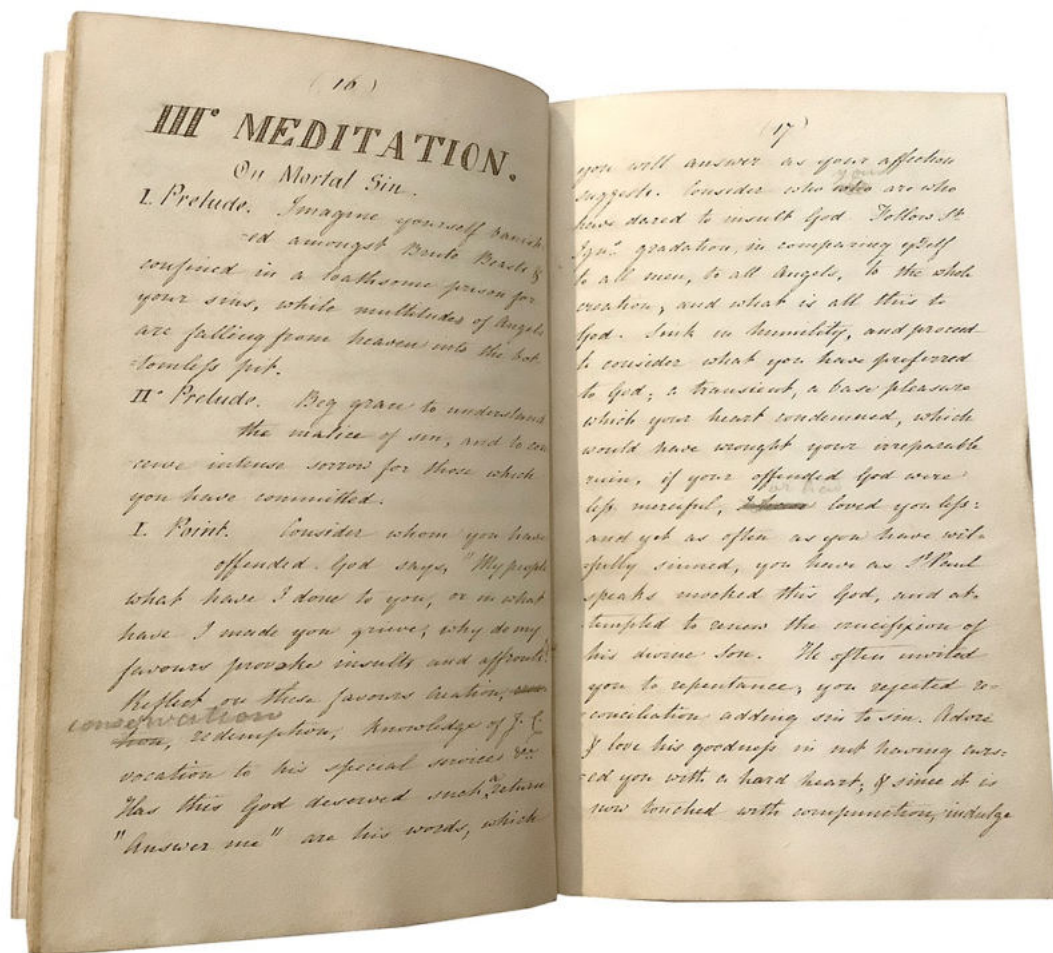 (16)
III° MEDITATION.
On Mortal Sin.
I. Prelude. Imagine yourself banish-
-ed amongst Brute Beasts &
confined in a loathsome prison for
your sins, while multitudes of Angels
are falling from heaven into the bot-
-tomless pit.
II° Prelude. Beg grace to understand
the malice of sin, and to con
ceive intense sorrow for those which
you have committed.
I. Point. Consider whom you have
offended. God says, "My people
what have I done to you, or in what
have I made you grieve; why do my
favours provoke insults and affronts?"
Reflect on these favours creation,
conservation
tion, redemption, knowledge of J. C.
vocation to his special service &c
Has this God deserved such return
"Answer me" are his words, which
(17)
you will answer as your affection
your
suggests. Consider who who are who
have dared to insult God. Follow St.
Ign.s gradation, in comparing yself
to all men, to all Angels, to the whole
creation; and what is all this to
God. Sink in humility, and proceed
to consider what you have preferred
to God; a transient, a base pleasure
which your heart condemned, which
would have wrought your irreparable
ruin, if your offended God were
or had
less merciful, loved you less:
and yet as often as you have wil-
-fully sinned, you have as St. Paul
speaks mocked this God, and at-
-tempted to renew the crucifixion of
his divine son. He often invited
you to repentance; you rejected re-
-conciliation adding sin to sin. Adore
& love his goodness in not having curs-
-ed you with a hard heart; & since it is
now touched with compunction, indulge